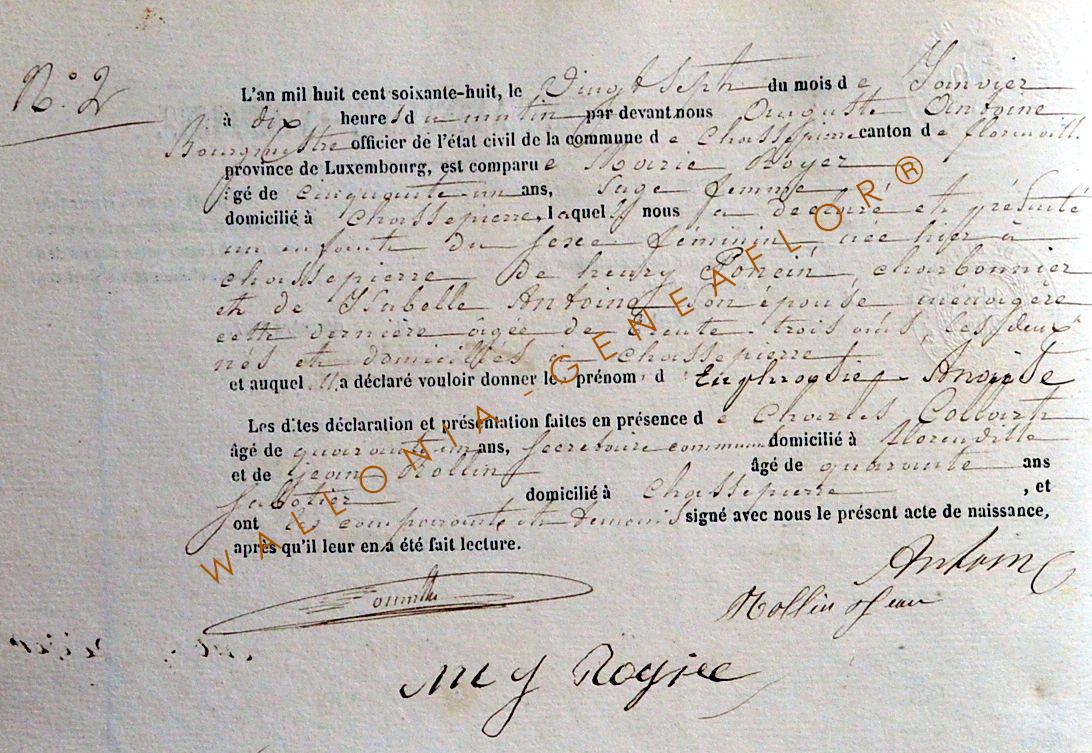 N.° 2
L'an mil huit cent soixante-huit, le Vingt Sept du mois de Janvier
à dix heures du matin par devant nous Auguste Antoine
Bourgmestre officier de l'état civil de la commune de Chassepierre canton de florenville
province de Luxembourg, est comparue Marie Royer
âgé de cinquante un ans, Sage femme
domicilié à Chassepierre, laquelle nous a declaré et présenté
un enfant du sexe féminin, née hier à
chassepierre de henry Poncin, charbonnier
et de Isabelle Antoine son épouse ménagère
cette dernière agée de trente-trois ans les deux
nés et domiciliés à chassepierre
et auquel il a déclaré vouloir donner le prénom d
Les dites déclaration et présentation faites en présence de Charles
âgé de quarante un ans, secretaire communal domicilié à florenville
et de Jean Rollin âgé de quarante ans
Sabotier domicilié à Chassepierre, et
ont les comparants et temoins signé avec nous le présent acte de naissance,
après qu'il leur en a été fait lecture.
Antoine
Rollin Jean
M J
WALLONIA-GENEAFLOR®